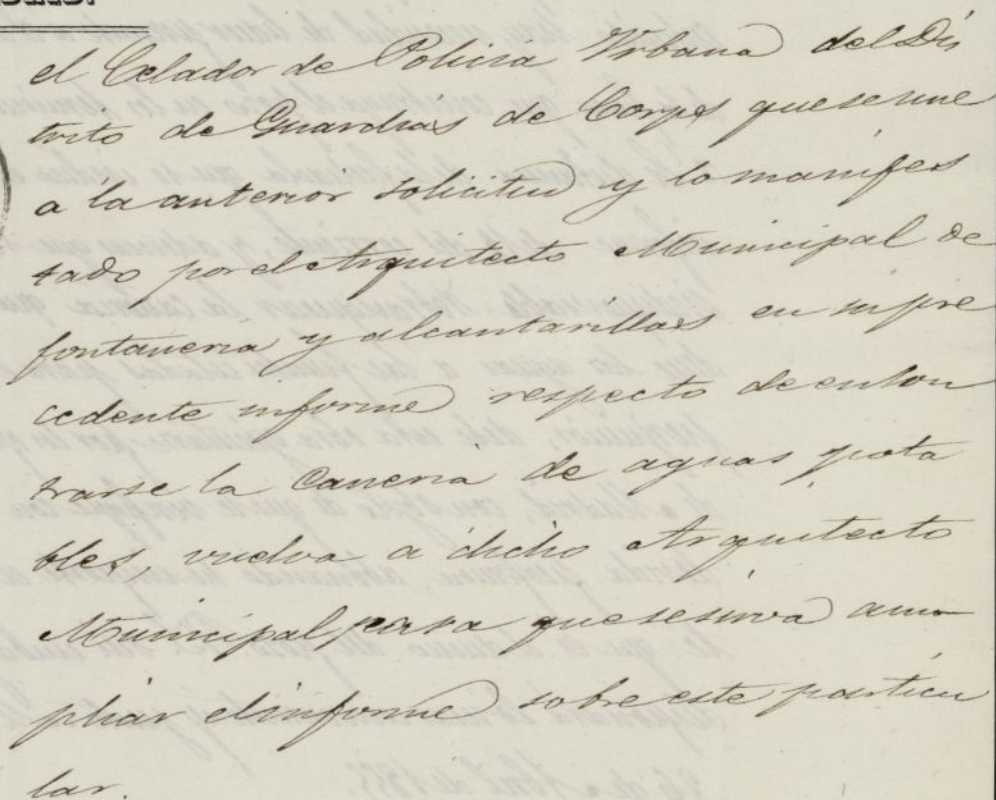 el Celador de Policia Urbana del Dis
trito de Guardias de Corps que se une
a la anterior solicitud y lo manifes
tado por el Arquitecto Municipal de
fontaneria y alcantarillas en su pre
cedente informe respecto de encon
trarse la caneria de aguas pota
bles, vuelva a dicho Arquitecto
Municipal, para que se sirva am
pliar el informe sobre este particu
lar.